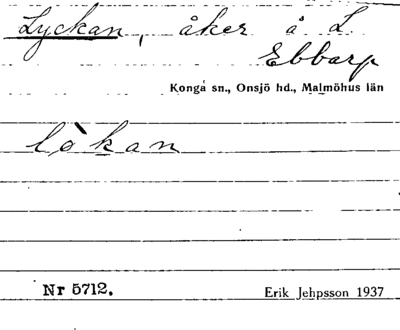 Lyckan, åker å L.
Ebbarp
Konga sn., Onsjö hd., Malmöhus län
lò̀kan
Nr 5712.
Erik Jehpsson 1937